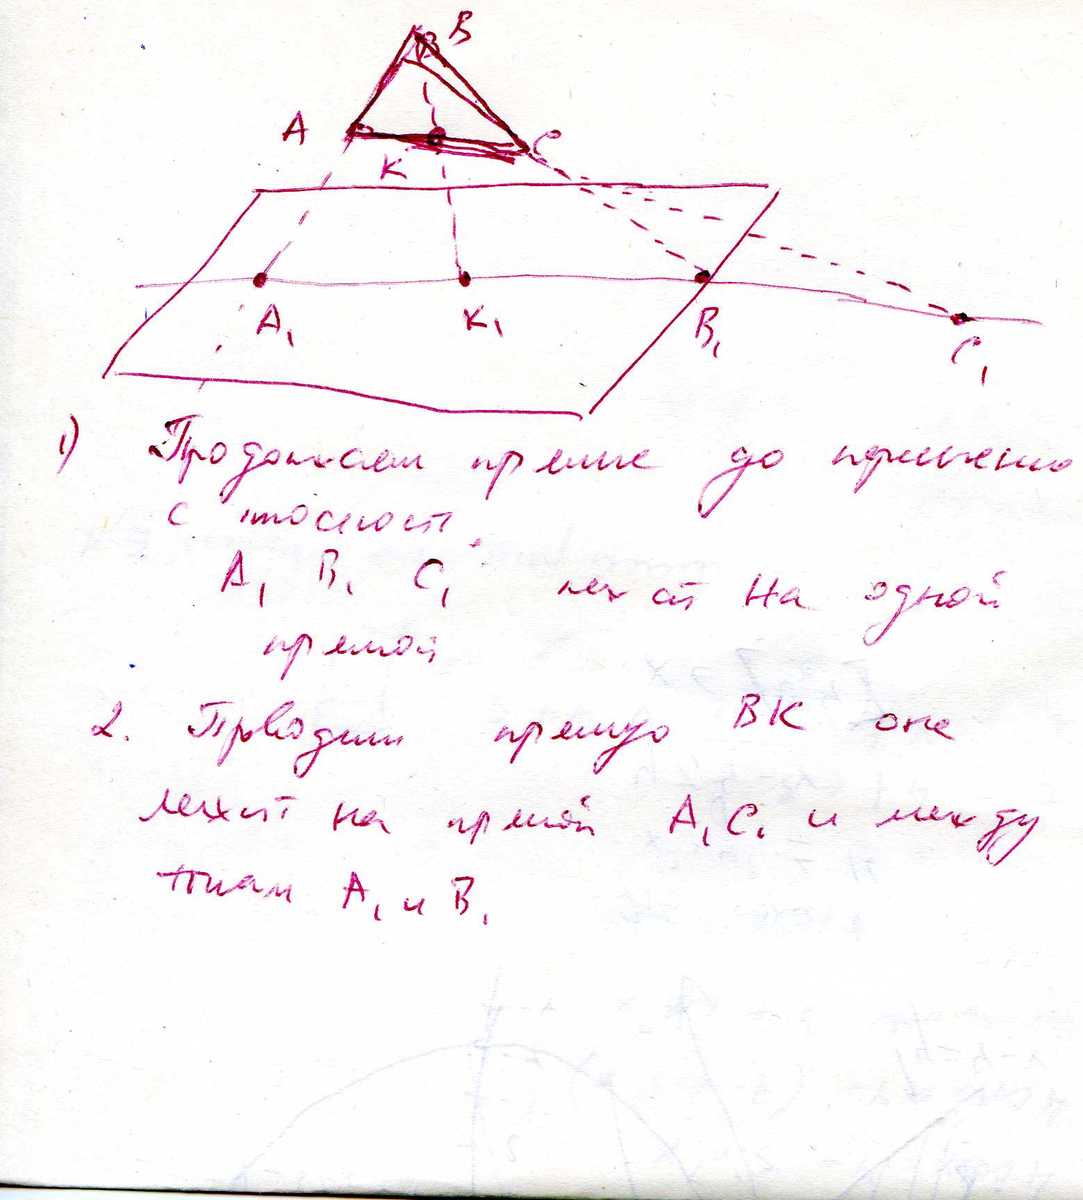 B
A
C
K
A₁
K₁
B₁
C₁
1) Продолжаем прямые до пересечения
с плоскость.
A₁ B₁ C₁ лежат на одной
прямой
2. Проводим прямую BK она
лежит на прямой A₁C₁ и между
точкам A₁ и B₁